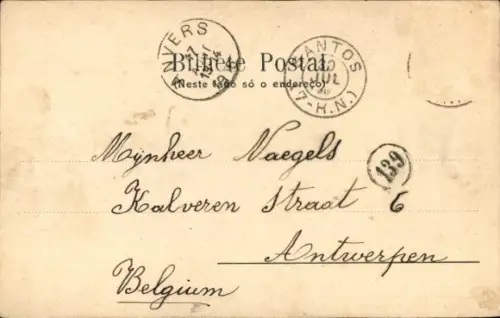 ANVERS
SANTOS
Bilhete Postal
(Neste lado só o endereço)
7-H.N.)
139
Mijnheer Naegels
Kalveren straat 6
Antwerpen
Belgium